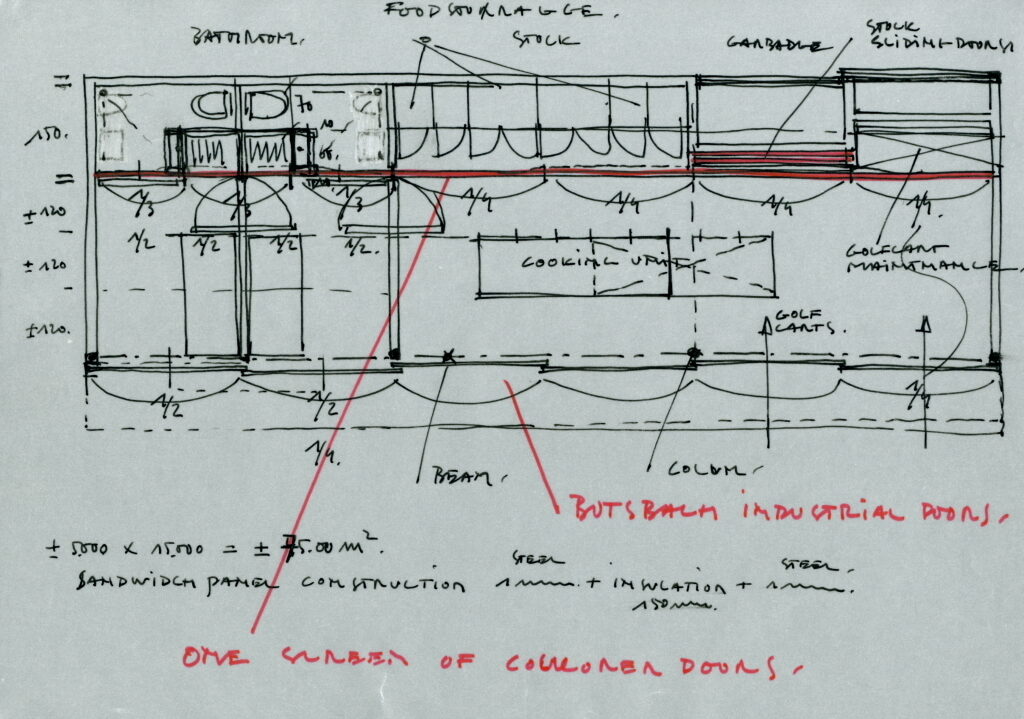 FOODSTORRAGGE.
BATHROOM.
STOCK
GARBADGE
STOCK
SLIDING-DOORS
70
10
60.
150.
± 120
± 120
± 120.
1/3
1/3
1/3
1/4
1/4
1/4
1/4.
1/2
1/2
1/2
1/2.
COOKING UNIT
GOLFCART
MAINTNANCE.
GOLF
CARTS.
1/2
1/2
1/4
1/4.
BEAM.
COLUM.
BUTSBACH INDUSTRIAL DOORS.
± 5.000 x 15.000 = ± 75.00 m².
SANDWIDCH PANEL CONSTRUCTION
STEEL
1mm. + INSULATION + 1mm.
STEEL.
150mm.
ONE SCREEN OF COULORED DOORS.